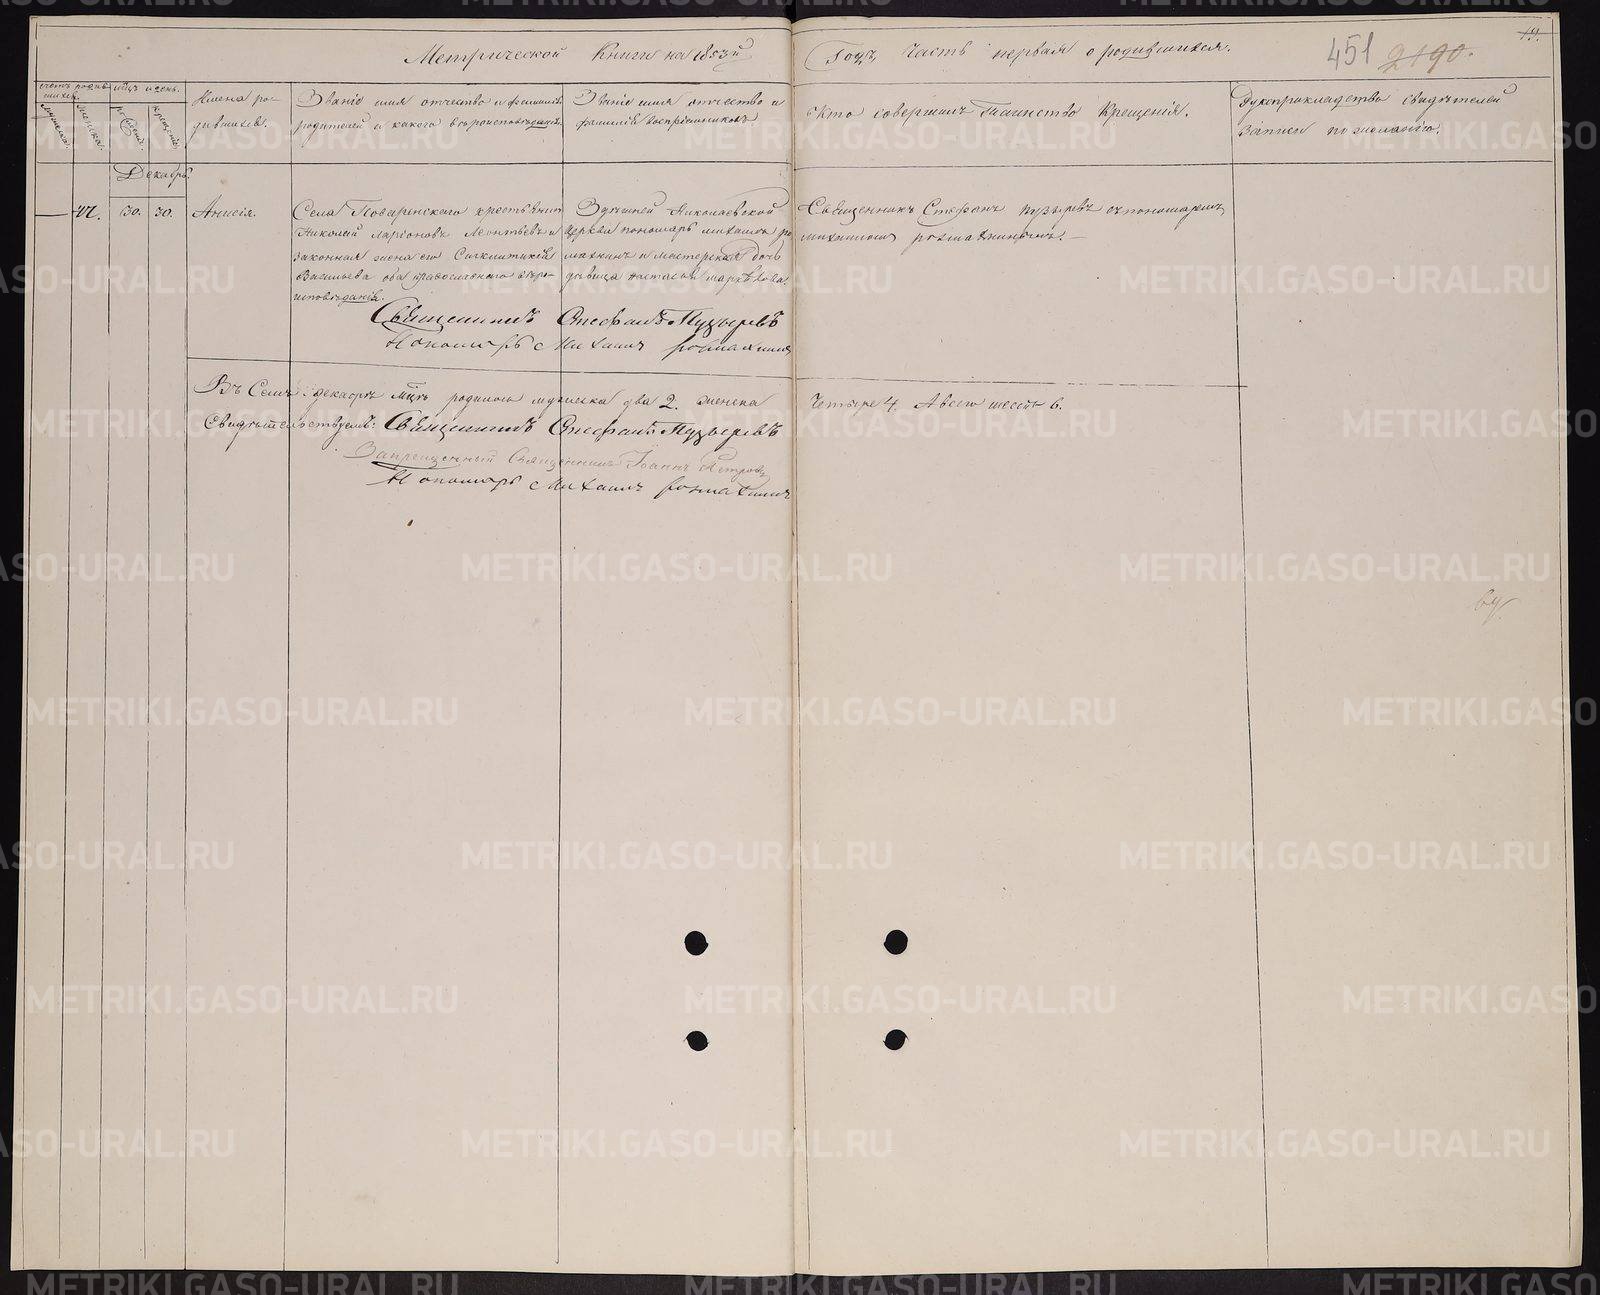 Метрической Книги на 1853й Годъ, Часть первая о родившихся.
451
2190.
19.
счетъ родив-
шихся.
мужеска.
женска.
мцъ и день.
рожденiя.
крещенiя.
Имена ро-
дившихся.
Званiе имя отчество и фамилiя
родителей и какого вѣроисповѣданiя.
Званiе имя отчество и
фамилiя воспрiемниковъ
Кто совершалъ Таинство Крещенiя.
Рукоприкладство свидѣтелей
записи по желанiю.
Декабрь.
30. 30.
Анисiя.
Села Поваренскаго крестьянинъ
Николай Ларiоновъ Леонтьевъ и
законная жена его Сигклитикiя
Васильева оба православнаго вѣро-
исповѣданiя.
Здѣшней Николаевской
церкви пономарь Михаилъ
и мастерская дочь
дѣвица Настасья
Священникъ Стефанъ Пузыревъ съ пономаремъ
Михаиломъ
Священникъ Стефанъ Пузыревъ
Пономарь Михаилъ
Въ Семъ декабрѣ мцѣ родилось мужеска два 2. женска
Четыре 4. А всего шесть 6.
Свидѣтельствуемъ: Священникъ Стефанъ Пузыревъ
Запрещенный Священникъ Iоаннъ Петровъ
Пономарь Михаилъ
METRIKI.GASO-URAL.RU